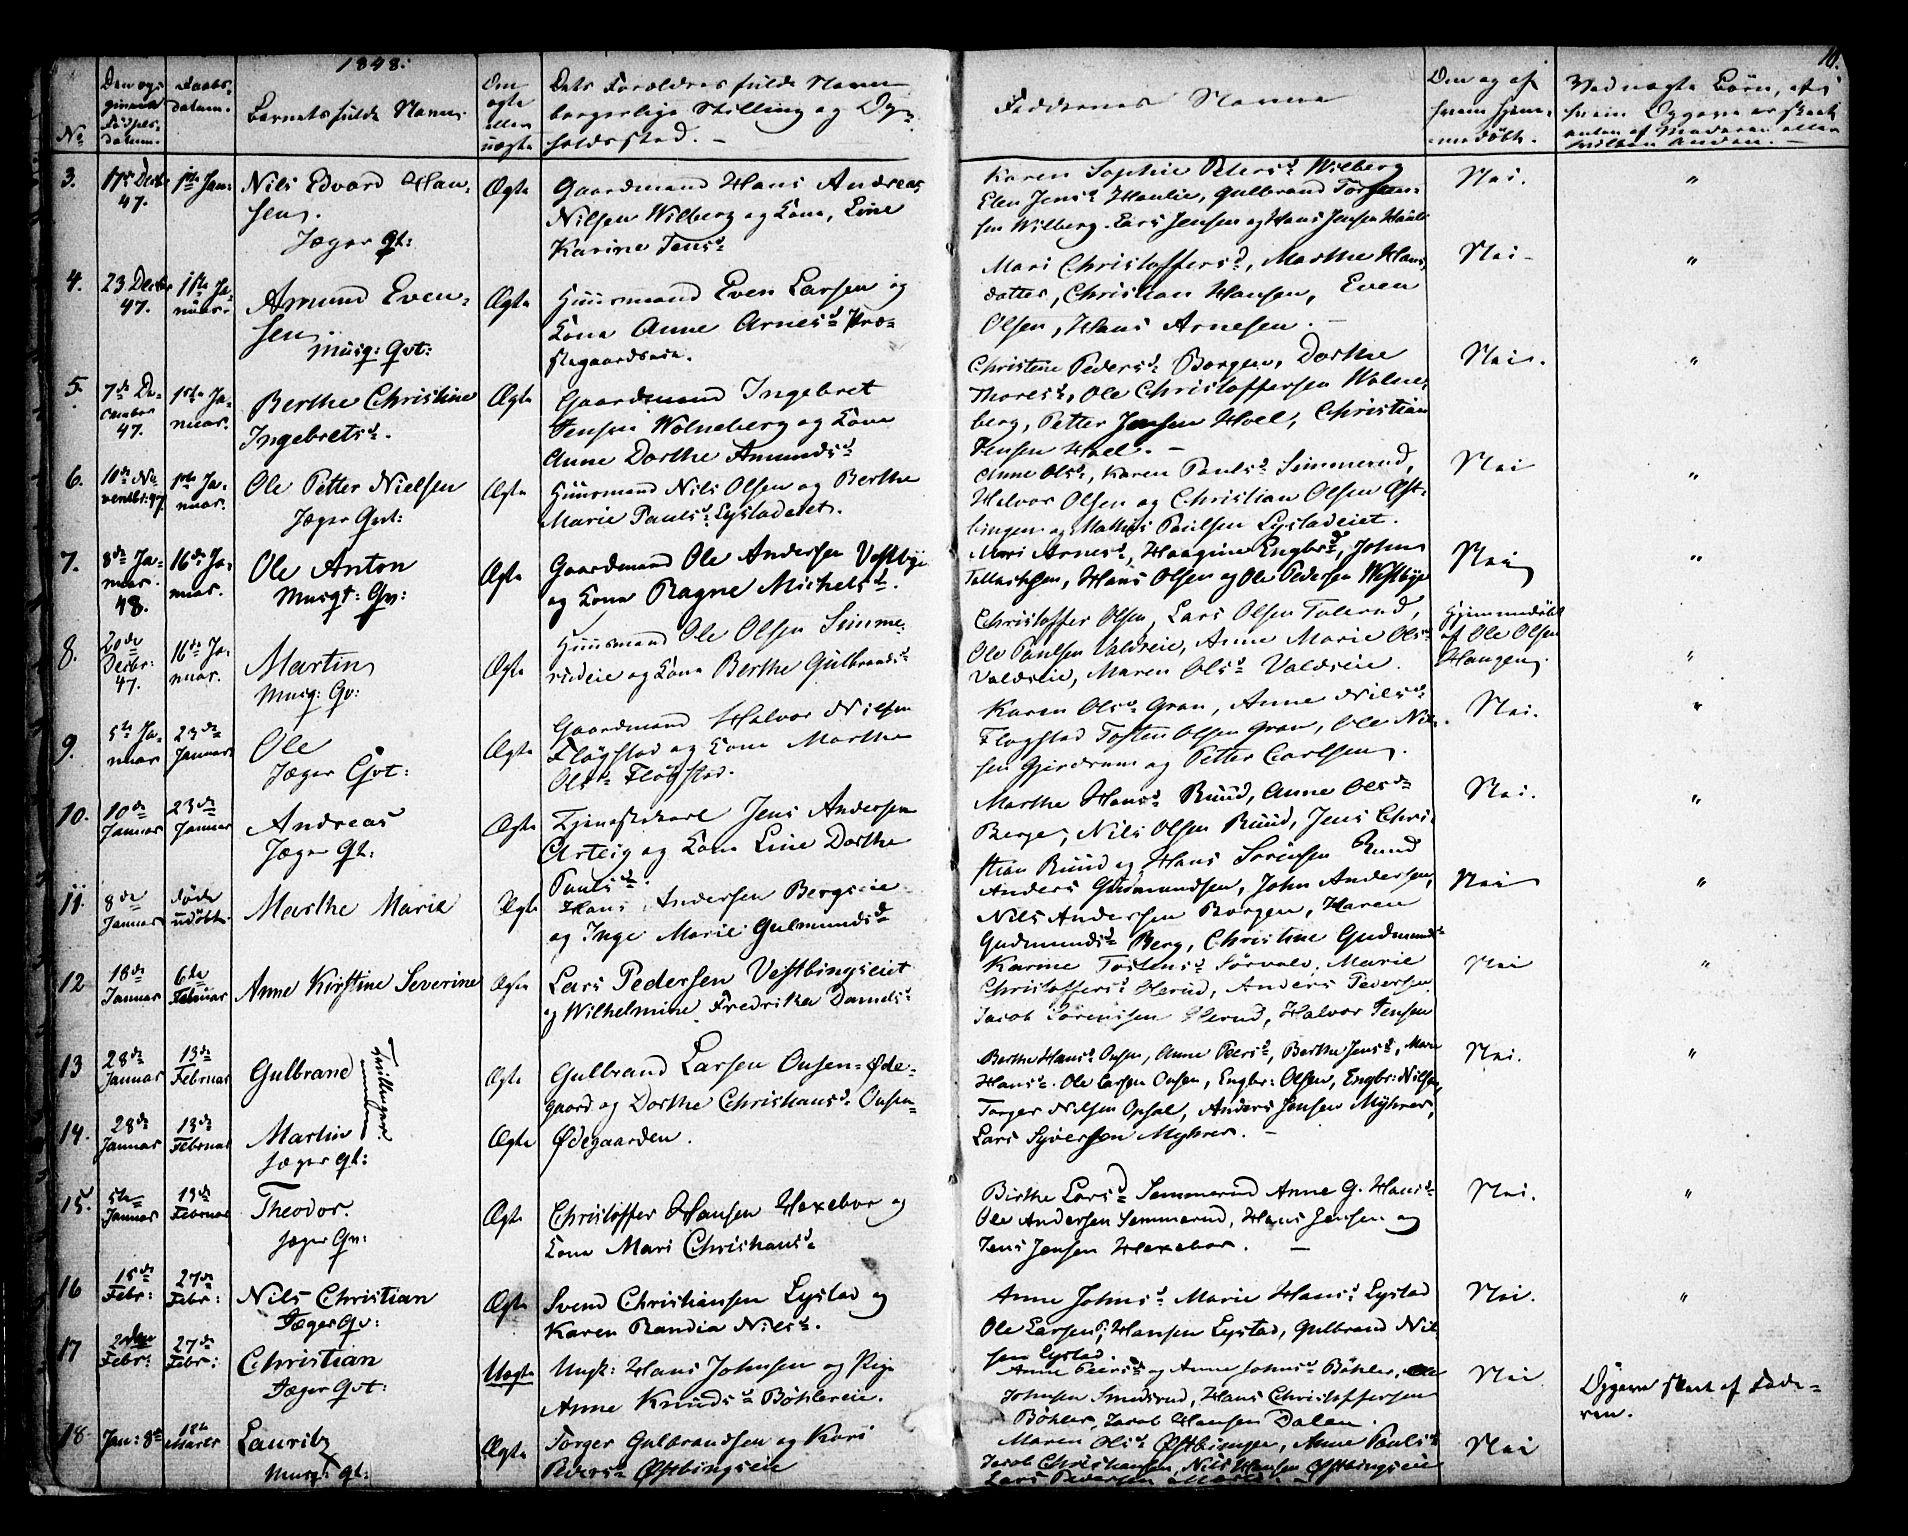 1848.
10.
No
Den op-
givne
Fødsels-
datum.
Daabs-
datum.
Barnets fulde Navn.
Om
ægte
eller
uægte
Dets Forældres fulde Navne
borgerlige Stilling og Op-
holdssted. –
Faddernes Navne
Om og af
hvem hjem-
medöbt.
Ved uægte Börn, af
hvem Opgave er skeet
enten af Moderen eller
hvilken Anden. –
3.
17de Decbr
47.
1ste Jan:
Nils Edvard Han-
sen.
Jæger Gt:
Ægte
Gaardmand Hans Andreas
Nilsen Wilberg og Kone, Line
Karine Jensd.
Karen Sophie Petersd Wilberg
Elen Jensd Haulie, Gulbrand Torsten-
sen Wilberg. Lars Jensen og Hans Jensen Haul-
Nei.
"
4.
23 Decbr
47.
1ste Ja-
nuar.
Amund Even-
sen
Musq: Gvt:
Ægte
Huusmand Even Larsen og
Kone Anne Arnesd Præ-
stegaardseie.
Mari Christoffersd, Marthe Hans-
datter, Christian Hansen, Even
Olsen, Hans Arnesen. –
Nei –
"
5.
7de De-
cember
47.
1ste Ja-
nuar.
Berthe Christine
Ingebretsd.
Ægte
Gaardmand Ingebret
Jensen Wolneberg og Kone
Anne Dorthe Amundsd
Christine Pedersd Borgen, Dorthe
Thoresd, Ole Christoffersen Wolne-
berg, Petter Jensen Hoel, Christian
Jensen Hoel. –
Nei.
"
6.
10de No-
vembr: 47.
1ste Ja-
nuar.
Ole Petter Nielsen
Jæger Gvt:
Ægte
Huusmand Nils Olsen og Berthe
Marie Paulsd Lystadeiet.
Anne Olsd, Karen Paulsd Simmerud,
Halvor Olsen og Christian Olsen Øst-
bingen og Mathis Paulsen Lystadeiet.
Nei
"
7.
8de Ja-
nuar.
48.
16de Ja-
nuar.
Ole Anton
Musqt: Gv:
Ægte
Gaardmand Ole Andersen Vestbye
og Kone Ragne Michelsd.
Mari Arnesd, Haagine Engbrd, Johns
Tollechsen, Hans Olsen og Ole Pedersen Westbye
Nei
"
8.
20de
Decbr:
47.
16de Ja-
nuar.
Martin
Musq: Gv:
Ægte
Huusmand Ole Olsen Simme-
rudeie og Kone Berthe Gulbrandsd
Christoffer Olsen, Lars Olsen Tolerud,
Ole Paulsen Valdseie, Anne Marie Olsd
Valdseie, Maren Olsd Valdseie.
Hjemmedöbt
af Ole Olsen
Haugen.
"
9.
5te Ja-
nuar
23de
Januar.
Ole
Jæger Gvt:
Ægte
Gaardmand Halvor Nilsen
Flögstad og Kone Marthe
Olsd Flögstad.
Karen Olsd Gran, Anne Nilsd
Flogstad Tosten Olsen Gran, Ole Nil-
sen Gjerdrum og Petter Carlsen.
Nei.
"
10.
10de
Januar
23de
Januar
Andreas
Jæger Gt:
Ægte
Tjenestekarl Jens Andersen
Arteig og Kone Line Dorthe
Paulsd.
Marthe Hansd Ruud, Anne Olsd
Berge, Nils Olsen Ruud, Jens Chri-
stian Ruud og Hans Sörensen Ruud
Nei.
"
11.
8de
Januar
Döde
udöbt.
Marthe Marie
Ægte
Hans Andersen Bergseie
og Inge Marie Gulmundsd
Anders Gudmundsen, John Andersen,
Nils Andersen Borgen, Haren
Gudmundsd Berg, Christine Gudmundsd
Nei
"
12
18de
Januar
6te
Februar
Anne Kirstine Severine
Ægte
Lars Pedersen Vestbingseiet
og Wilhelmine Fredrika Danielsd
Karine Tostensd Sörvald, Marie
Christoffersd Herud, Anders Pedersen
Jacob Sörensen Herud, Halvor Jensen
Nei
"
13
28de
Januar
13de
Februar
Gulbrand
Tvillinger.
Ægte
Gulbrand Larsen Onsen-Øde-
gaard og Dorthe Christiansd Onsen-
Berthe Hansd Onsen, Anne Peersd, Berthe Jensd, Mari
Hansd. Ole Larsen Onsen, Engbr: Olsen, Engbr: Nilsen,
Nei.
"
14.
28de
Januar
13de
Februar
Martin
Jæger Gt:
Ægte
Ødegaarden.
Torger Nilsen Opsal, Anders Jensen Myhrer,
Lars Syversen Myhrer. –
15.
5te
Januar
13de
Februar
Theodor.
Jæger Gv:
Ægte
Christoffer Hansen Hexebor og
Kone Mari Christiansd
Birthe Larsd Semmerud Anne G. Hansd
Ole Andersen Semmerud, Hans Jensen og
Jens Jensen Hexebor. –
Nei.
"
16
15de
Febr:
27de
Febr:
Nils Christian
Jæger Gv:
Ægte
Svend Christiansen Lystad og
Karen Randia Nilsd.
Anne Johnsd Marie Hansd Lystad
Ole Larsen, Hansen Lystad, Gulbrand Nil-
sen Lystad.
Nei.
"
17
2den
Febr:
27de
Febr:
Christian
Jæger Gvt:
Uægte
Ungk: Hans Johnsen og Pige
Anne Knudsd Böhlereie.
Anne Peersd og Anne Johnsd Böhler, Ole
Johnsen Smedsrud, Hans Christoffersen
Böhler, Jacob Hansen Dalen.
Nei
Opgave skeet af Fade-
ren.
18
Jan: 8de
12te
Marts
Lauritz
Musqt: Gt:
Ægte
Torger Gulbrandsen og Kari
Pedersd Østbingseie
Maren Olsd Østbingen, Anne Paulsd
Jacob Christiansen, Nils Hansen Østbingseie
Lars Pedersen
Nei